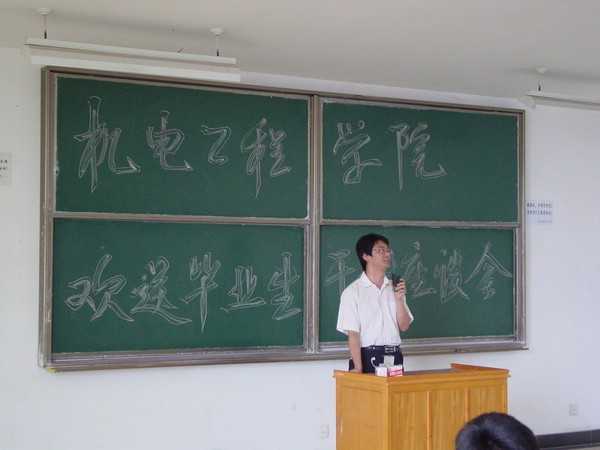 机电工程学院
欢送毕业生干 座谈会